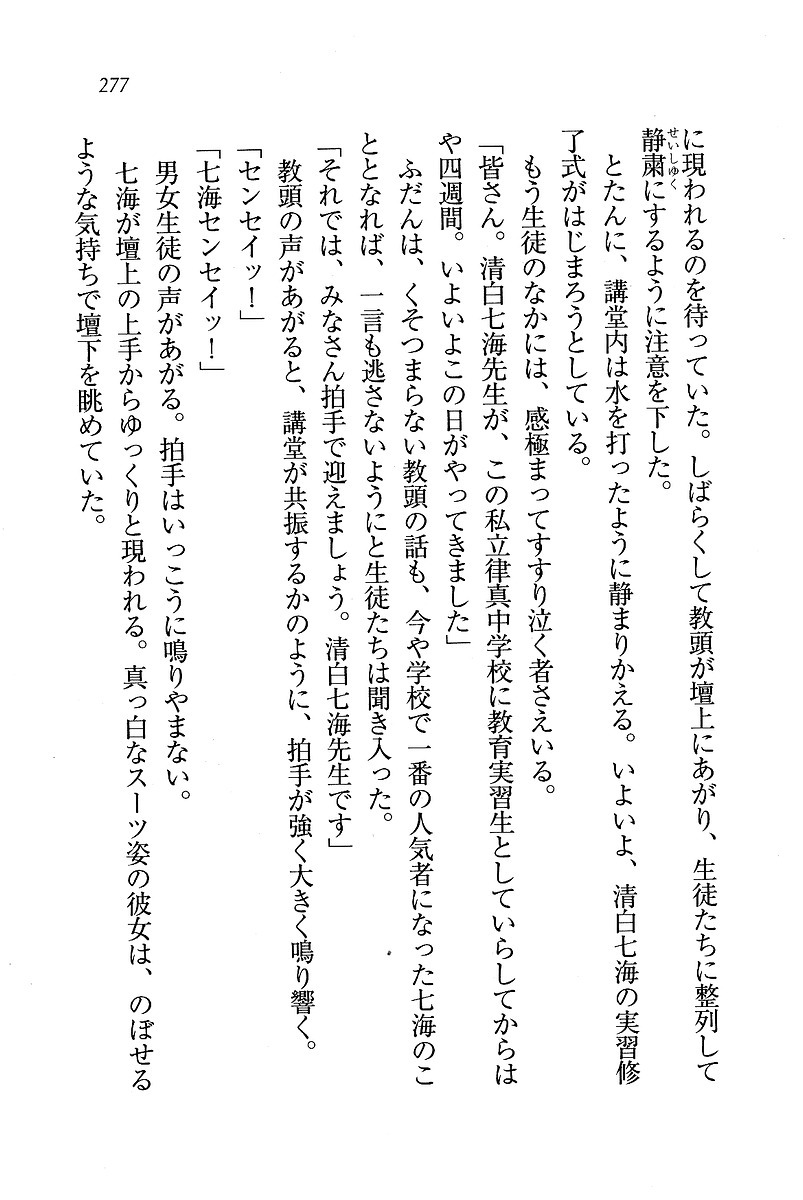 277
に現われるのを待っていた。しばらくして教頭が壇上にあがり、生徒たちに整列して
静粛にするように注意を下した。
せいしゆく
とたんに、講堂内は水を打ったように静まりかえる。いよいよ、清白七海の実習修
了式がはじまろうとしている。
もう生徒のなかには、感極まってすすり泣く者さえいる。
「皆さん。清白七海先生が、この私立律真中学校に教育実習生としていらしてからは
や四週間。いよいよこの日がやってきました」
ふだんは、くそつまらない教頭の話も、今や学校で一番の人気者になった七海のこ
ととなれば、一言も逃さないようにと生徒たちは聞き入った。
「それでは、みなさん拍手で迎えましょう。清白七海先生です」
教頭の声があがると、講堂が共振するかのように、拍手が強く大きく鳴り響く。
「センセイッ！」
「七海センセイッ！」
男女生徒の声があがる。拍手はいっこうに鳴りやまない。
七海が壇上の上手からゆっくりと現われる。真っ白なスーツ姿の彼女は、のぼせる
ような気持ちで壇下を眺めていた。